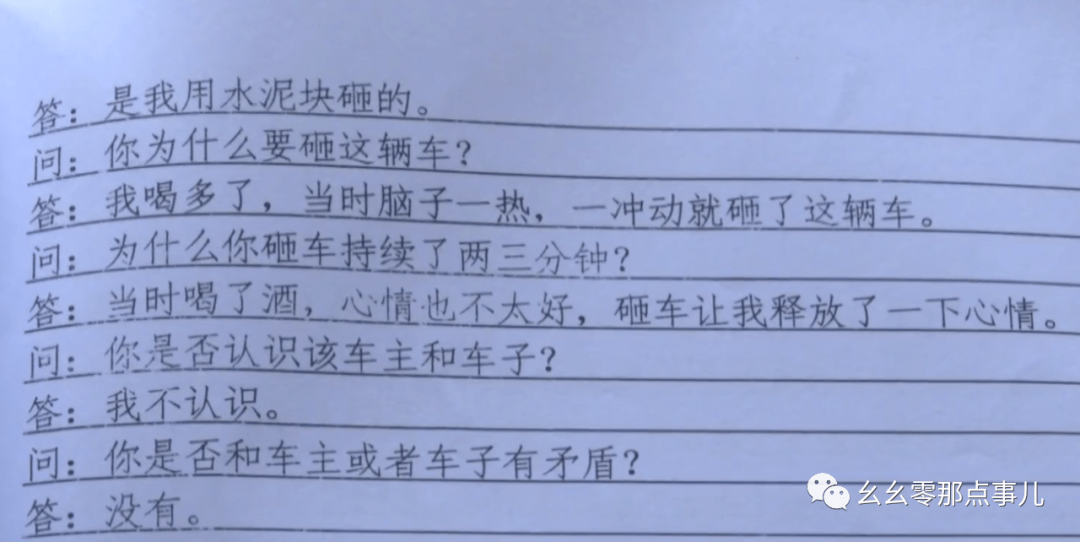 答：是我用水泥块砸的。
问：你为什么要砸这辆车？
答：我喝多了，当时脑子一热，一冲动就砸了这辆车。
问：为什么你砸车持续了两三分钟？
答：当时喝了酒，心情也不太好，砸车让我释放了一下心情。
问：你是否认识该车主和车子？
答：我不认识。
问：你是否和车主或者车子有矛盾？
答：没有。
幺幺零那点事儿